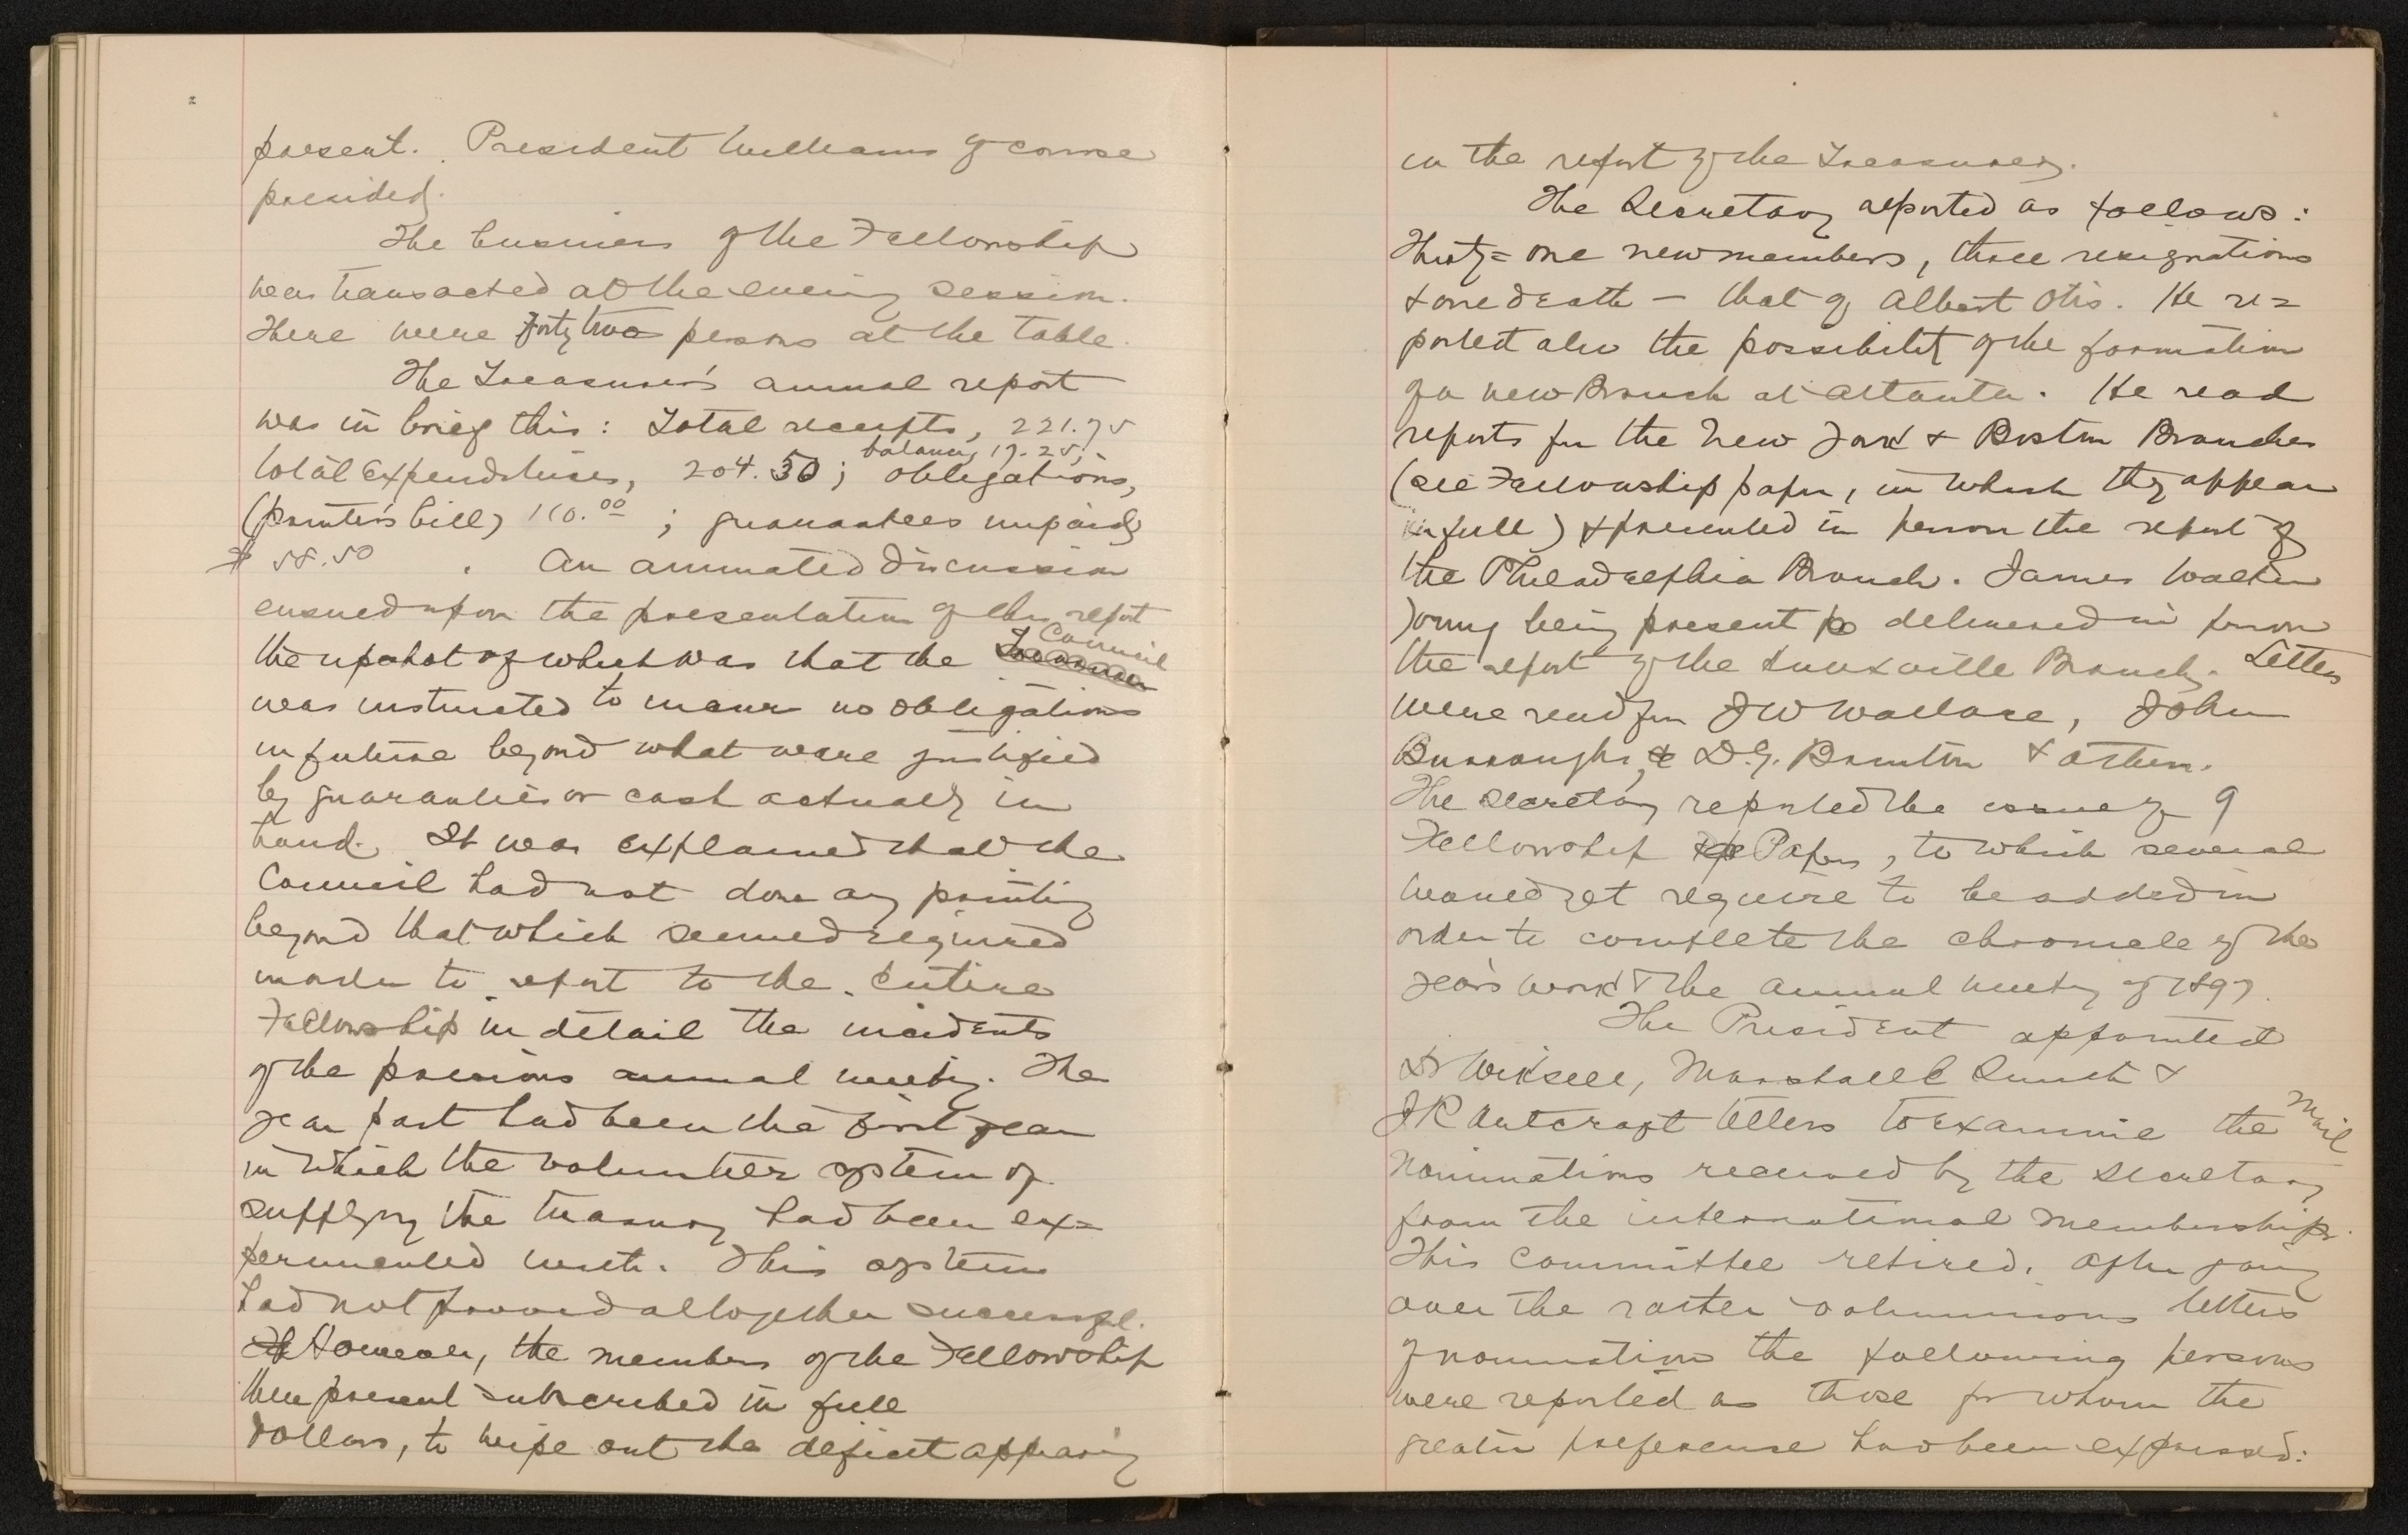 present. President Williams of course
presided.
The business of the Fellowship
was transacted at the evening session.
There were forty two persons at the table.
The Treasurer's annual report
was in brief this: Total receipts, 221.75
total expenditures, 204.50; balance, 17.25; obligations,
(printer's bill) 110.00 ; guarantees unpaid,
$ 58.50 . An animated discussion
ensued upon the presentation of this report
the upshot of which was that the Treasurer Council
was instructed to incur no obligations
in future beyond what were justified
by guaranties or cash actually in
hand. It was explained that the
Council had not done any printing
beyond that which seemed required
in order to report to the entire
Fellowship in detail the incidents
of the previous annual meeting. The
year past had been the first year
in which the volunteer system of
supplying the treasury had been ex=
perimented with. This system
had not proved altogether successful.
However, the members of the Fellowship
then present subscribed in full
dollars, to wipe out the deficit appearing
in the report of the Treasurer.
The Secretary reported as follows:
Thirty=one new members, three resignations
& one death — that of Albert Otis. He re=
ported also the possibility of the formation
of a new Branch at Atlanta. He read
reports for the New York & Boston Branches
(see Fellowship paper, in which they appear
in full) & presented in person the report of
the Philadelphia Branch. James Walter
Young being present delivered in person
the report of the Knoxville Branch. Letters
were read from J W Wallace, John
Burroughs, & D.G. Brinton & others.
The Secretary reported the issue of 9
Fellowship Papers, to which several
would yet require to be added in
order to complete the chronicle of the
year's work & the annual meeting of 1897.
The President appointed
Dr Wiksell, Marshall &
J R tellers to examine the mail
nominations received by the Secretary
from the international membership.
This committee retired. After going
over the rather voluminous letters
of nomination the following persons
were reported as those for whom the
greater preference had been expressed: